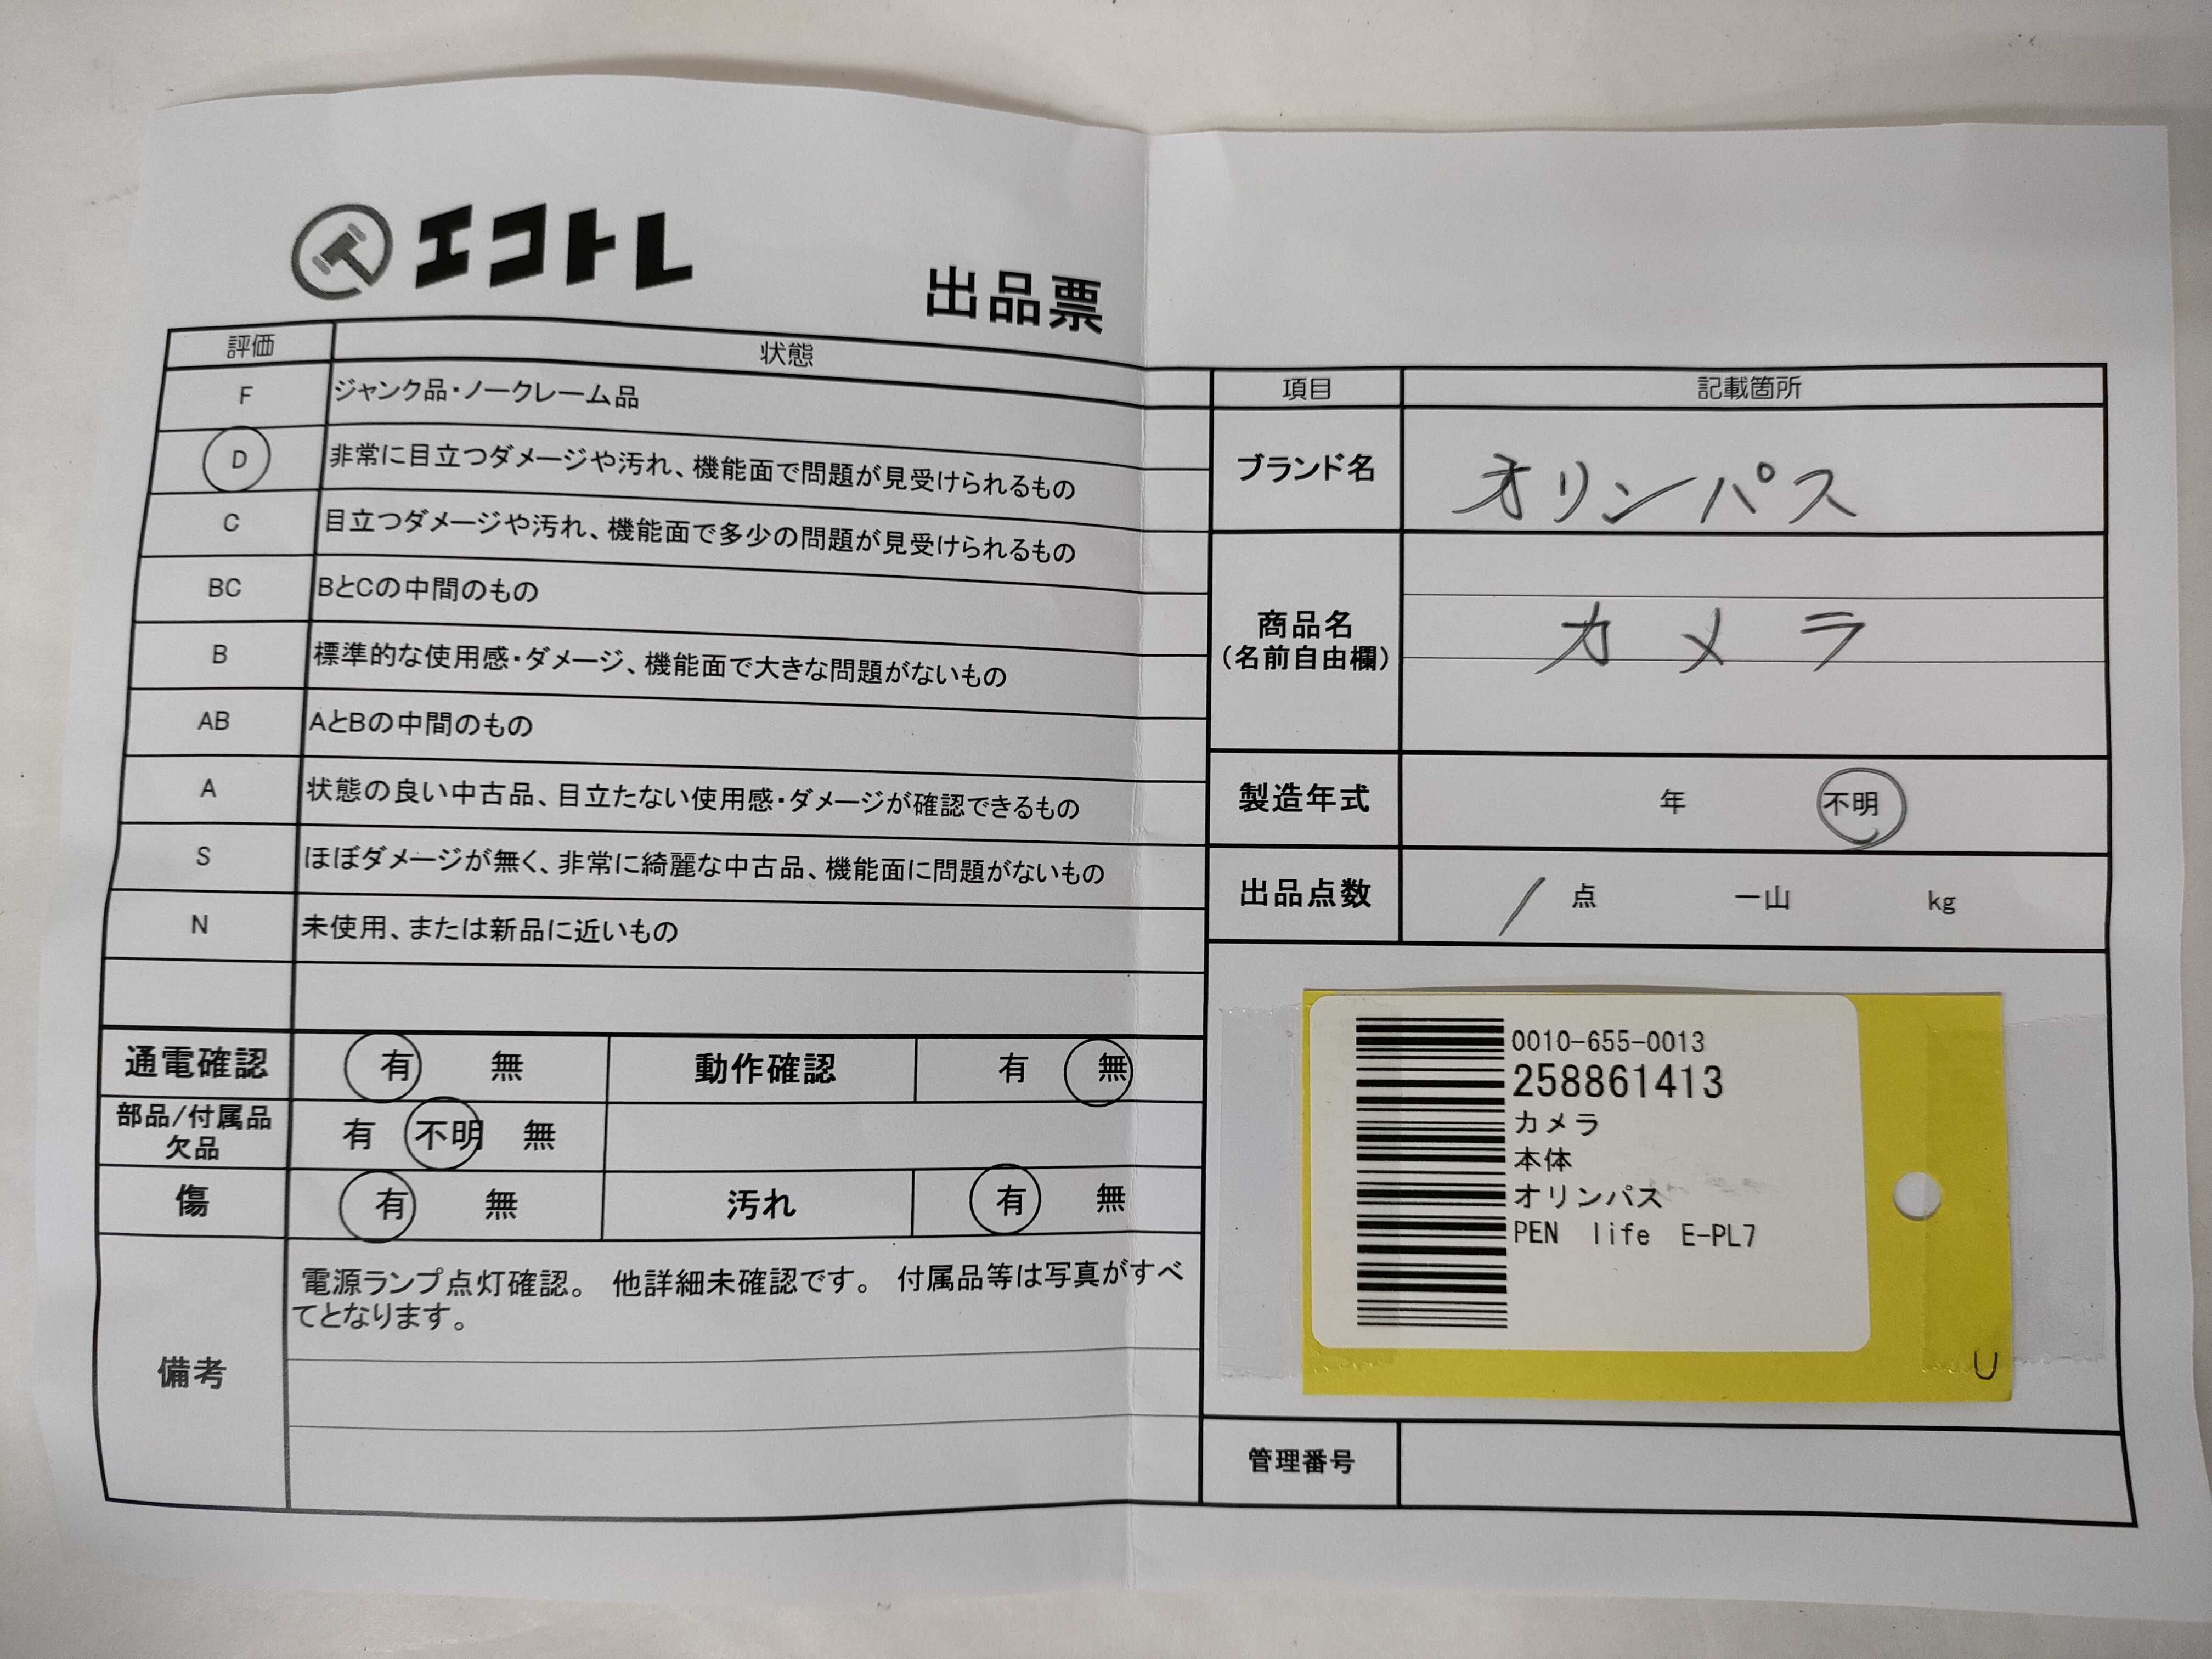 エコトレ
出品票
評価 状態
F ジャンク品・ノークレーム品
D 非常に目立つダメージや汚れ、機能面で問題が見受けられるもの
C 目立つダメージや汚れ、機能面で多少の問題が見受けられるもの
BC BとCの中間のもの
B 標準的な使用感・ダメージ、機能面で大きな問題がないもの
AB AとBの中間のもの
A 状態の良い中古品、目立たない使用感・ダメージが確認できるもの
S ほぼダメージが無く、非常に綺麗な中古品、機能面に問題がないもの
N 未使用、または新品に近いもの
通電確認 有 無 動作確認 有 無
部品/付属品
欠品 有 不明 無
傷 有 無 汚れ 有 無
備考
電源ランプ点灯確認。 他詳細未確認です。 付属品等は写真がすべ
てとなります。
項目 記載箇所
ブランド名 オリンパス
商品名
(名前自由欄) カメラ
製造年式 年 不明
出品点数 / 点 一山 kg
0010-655-0013
258861413
カメラ
本体
オリンパス
PEN life E-PL7
U
管理番号